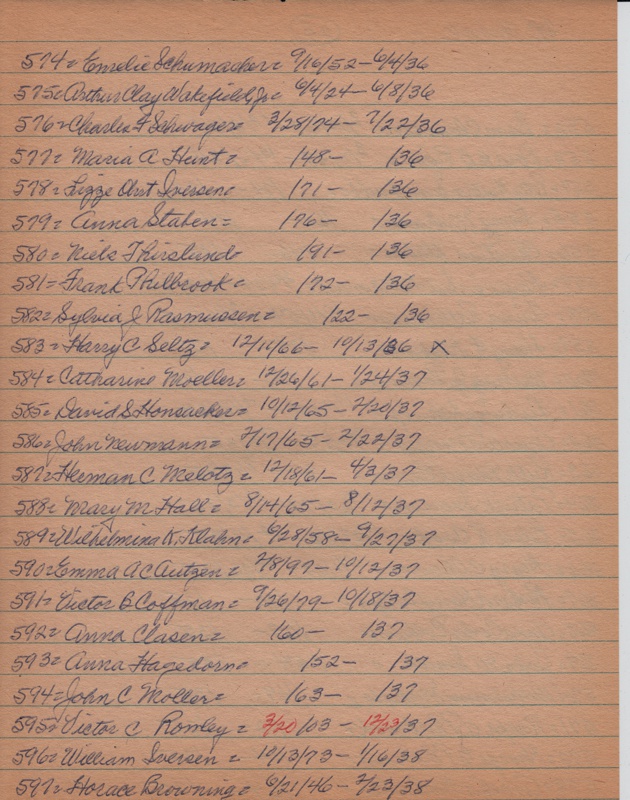 574= Emelie Schumacker= 9/16/52-6/4/36
575= Arthur Clay Wakefield, Jr= 6/4/24-6/8/36
576= Charles F Schwager= 3/28/74- 7/22/36
577= Maria A Hunt= /48- /36
578= Lizze Obst Iversen= /71- /36
579= Anna Staben= /76- /36
580= Niels Thirslund= /91- /36
581= Frank Philbrook= /72- /36
582= Sylvia J Rasmussen= /22- /36
583= Harry C Seltz= 12/11/66- 10/13/36 X
584= Catharine Moeller= 12/26/61- 1/24/37
585= David S Honsacker= 10/12/65- 2/20/37
586= John Newmann= 7/17/65- 2/22/37
587= Herman C Melotz= 12/18/61- 4/3/37
588= Mary M Hall= 8/14/65- 8/12/37
589= Wilhelmina K. Klahn= 6/28/58- 9/27/37
590= Emma A C Autzen= 7/8/97- 10/12/37
591= Victor B Coffman= 9/26/79-10/18/37
592= Anna Clasen= /60- /37
593= Anna Hagedorn= /52- /37
594= John C Moller= /63- /37
595= Victor C Romley= 3/20/03 - 12/23/37
596= William Iversen= 10/13/73- 1/16/38
597= Horace Browning= 6/21/46- 2/23/38